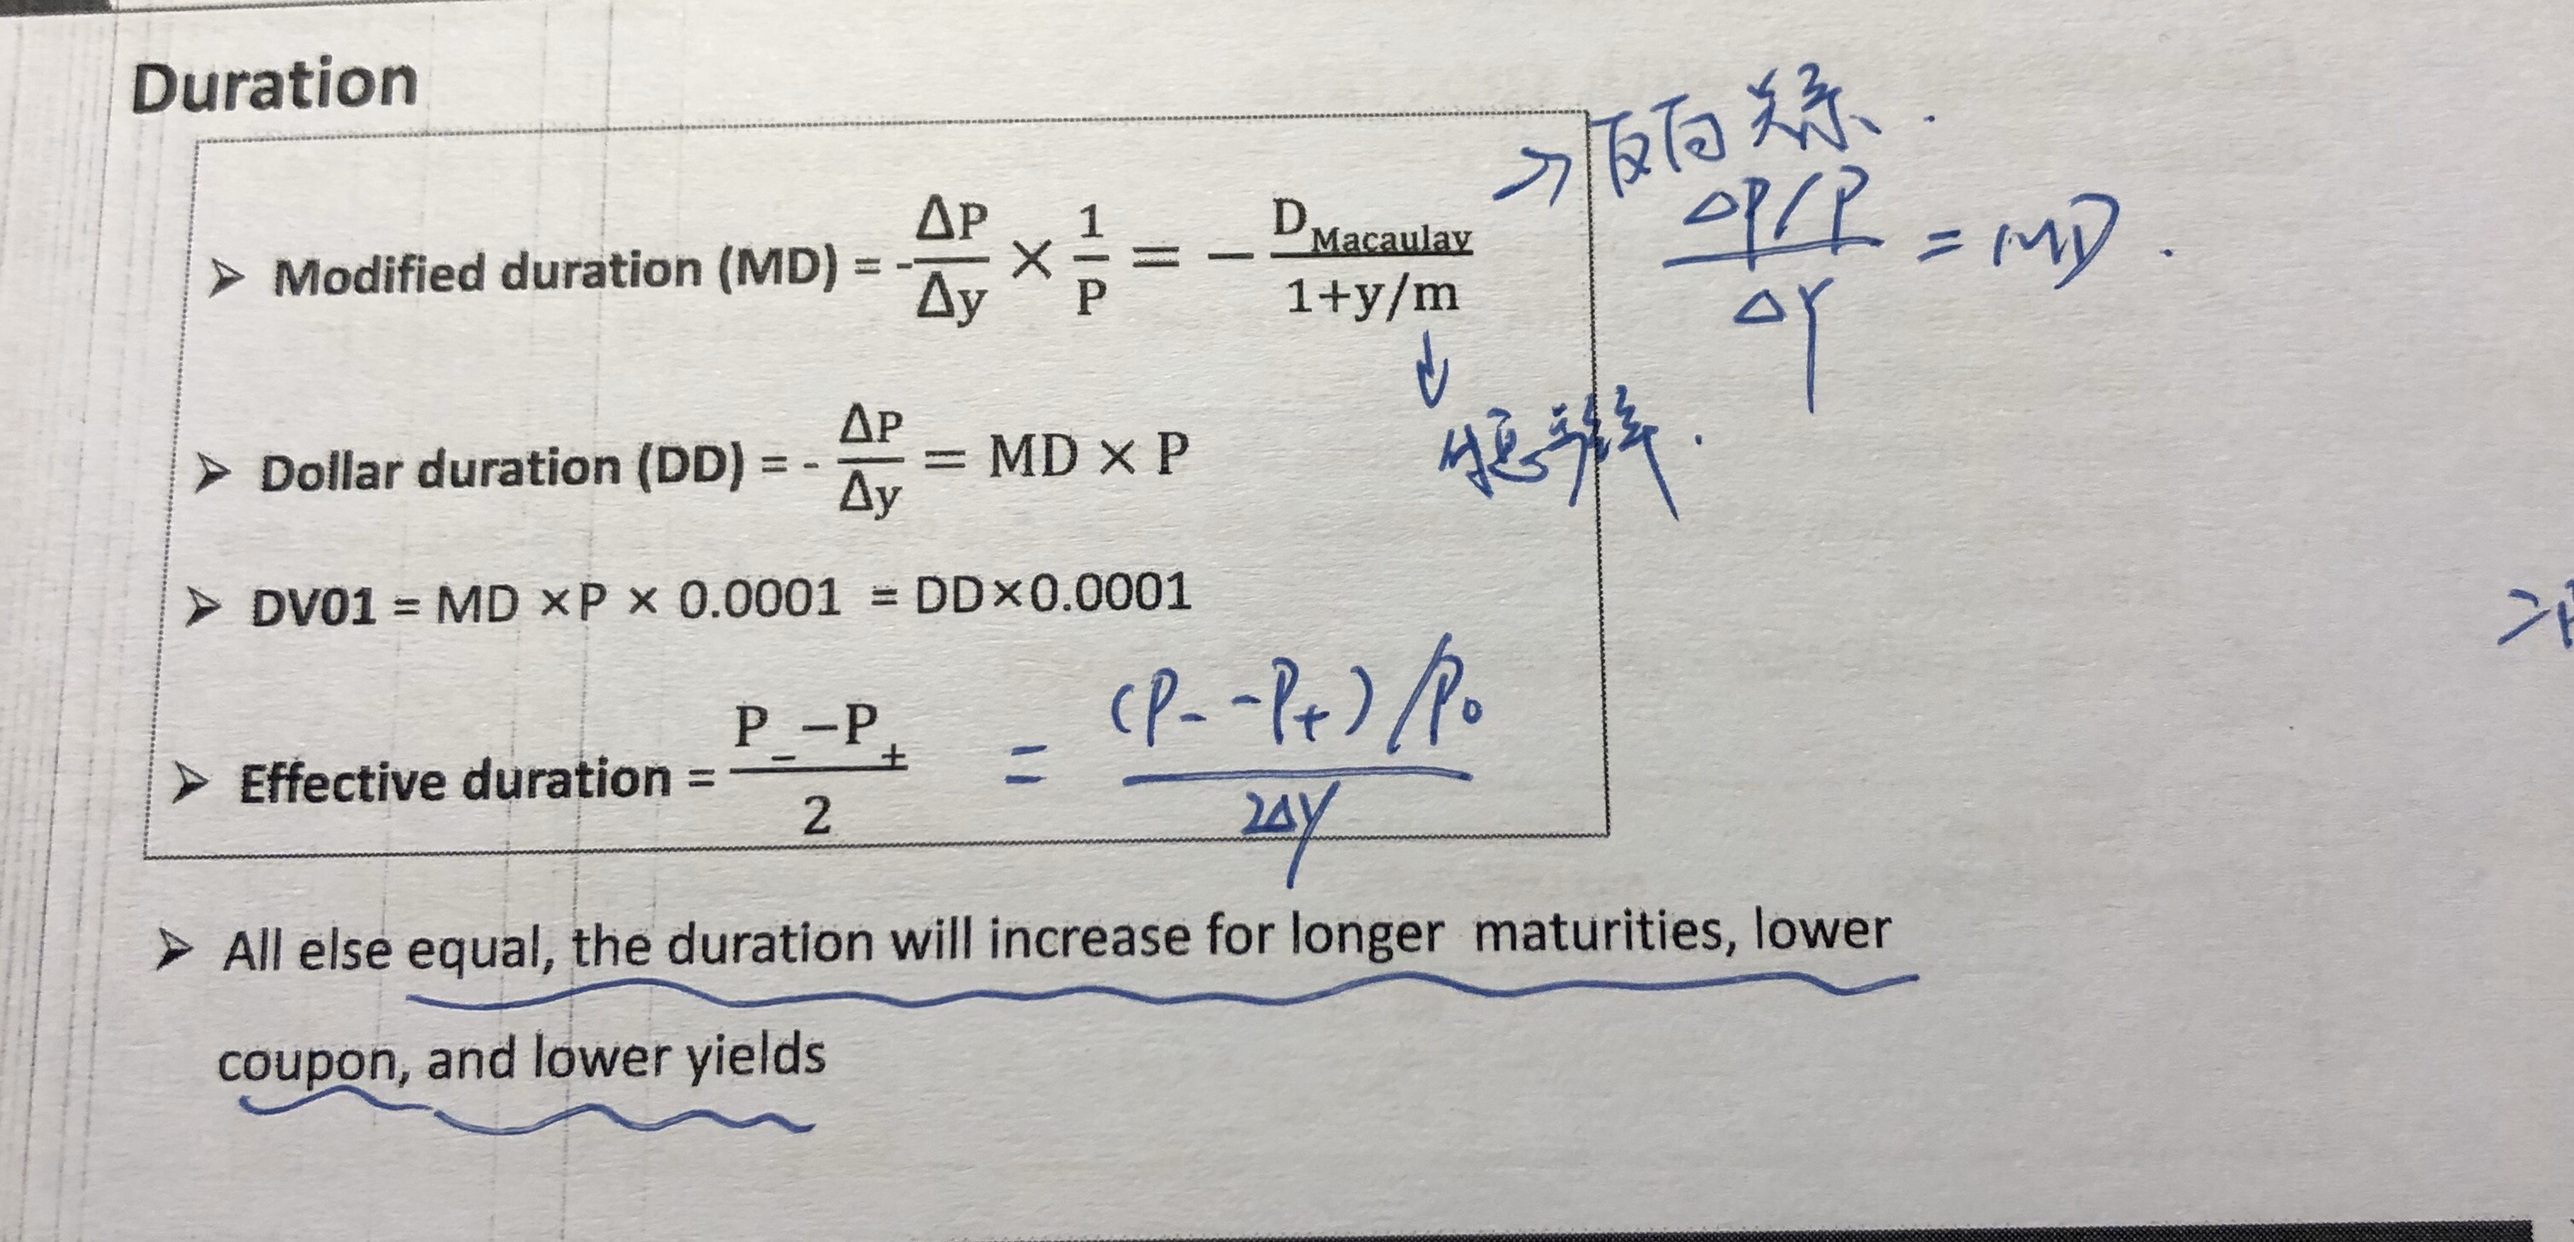 Duration
➢ Modified duration (MD) = -ΔP/Δy × 1/P = − D_Macaulay/1+y/m
→ 反向关系.
ΔP/P / ΔY = MD.
↓
付息频率.
➢ Dollar duration (DD) = - ΔP/Δy = MD × P
➢ DV01 = MD ×P × 0.0001 = DD×0.0001
➢ Effective duration = P_- −P_+ / 2 = (P_- - P_+)/P_0 / 2ΔY
➢ All else equal, the duration will increase for longer maturities, lower
coupon, and lower yields